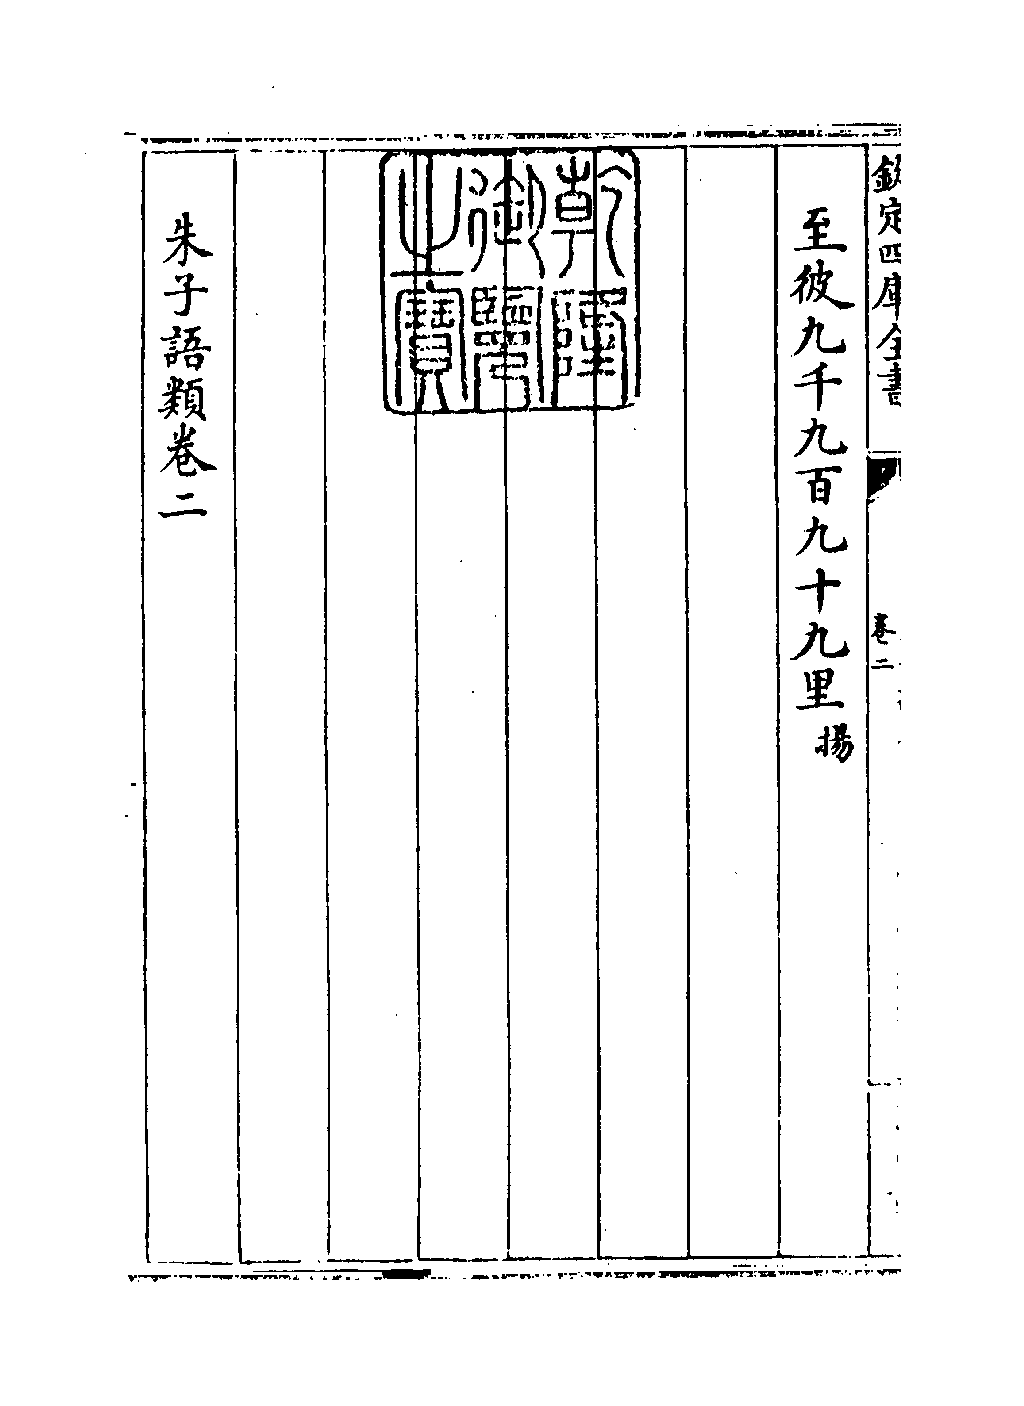 欽定四庫全書
卷二
至彼九千九百九十九里揚
乾隆
御覽
之寶
朱子語類卷二